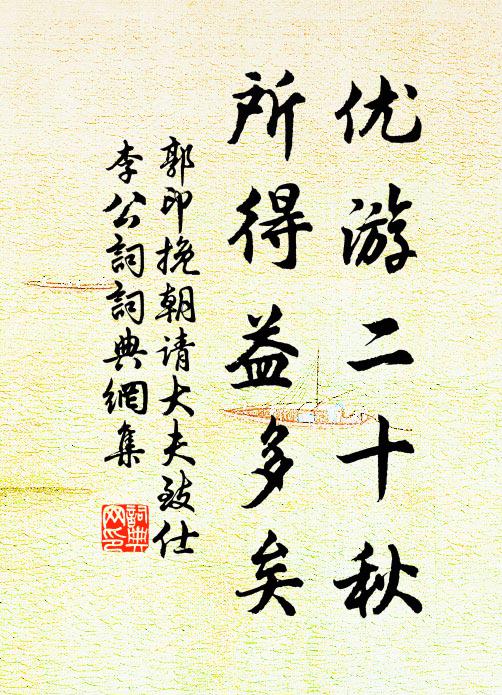 优游二十秋
所得益多矣
郭印挽朝请大夫致仕
李公詞詞典網集
詞典
网印